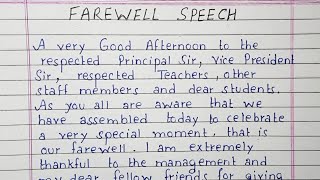 FAREWELL SPEECH
A very Good Afternoon to the
respected Principal Sir, Vice President
Sir, respected Teachers, other
staff members and dear students.
As you all are aware that we
have assembled today to celebrate
a very special moment. that is
our farewell. I am extremely
thankful to the management and
my dear fellow friends for giving